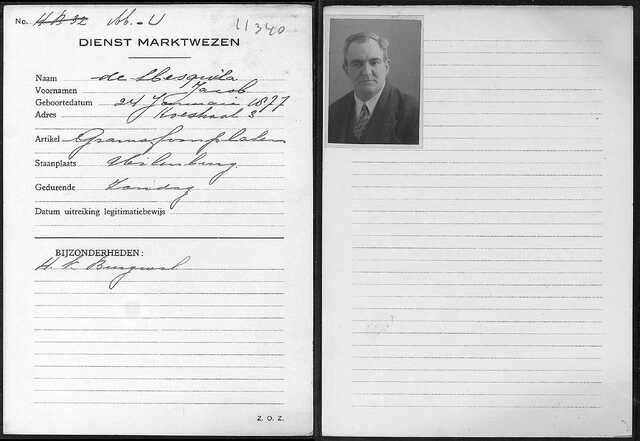 No. H.B. 32 Ab. - U 11340
DIENST MARKTWEZEN
Naam de Mesquita
Voornamen Jacob
Geboortedatum 24 Januari 1877
Adres 3
Artikel Gramofoonplaten
Staanplaats Uilenburg
Gedurende Zondag
Datum uitreiking legitimatiebewijs
BIJZONDERHEDEN:
Burgwal
Z. O. Z.